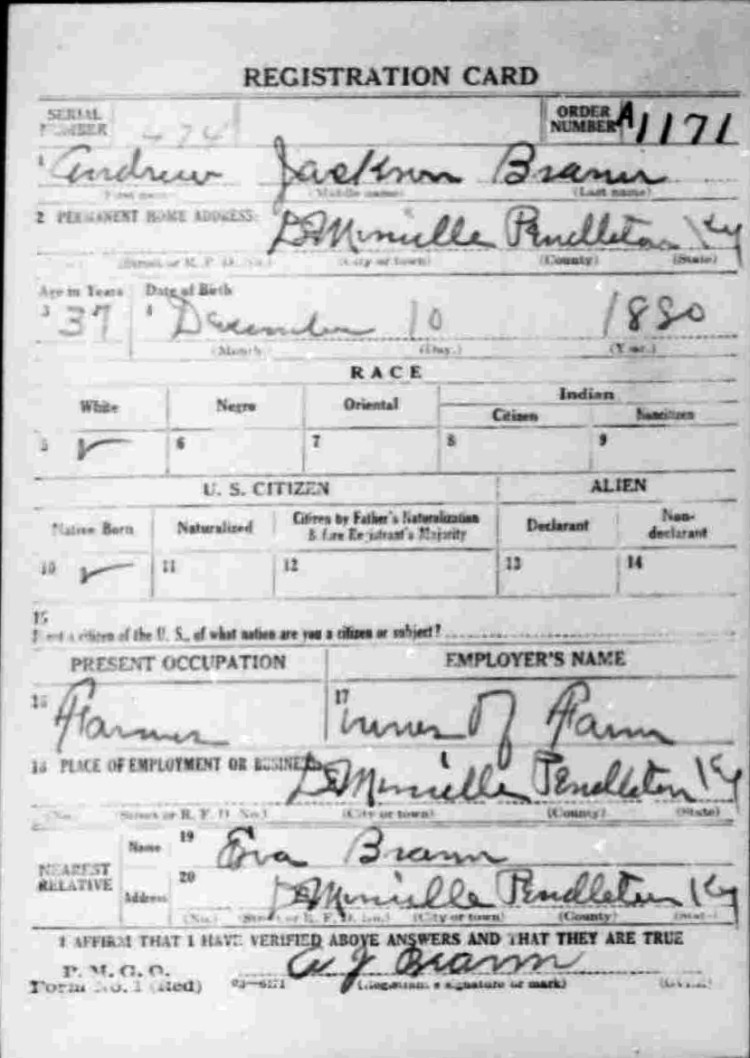 REGISTRATION CARD
SERIAL NUMBER 474 ORDER NUMBER A1171
1 Andrew Jackson Brann
First name (Middle name) (Last name)
2 PERMANENT HOME ADDRESS: DeMossville Pendleton Ky
(Street or R. F. D. No.) (City or town) (County) (State)
Age in Years Date of Birth
3 37 4 December 10 1880
(Month) (Day.) (Year.)
RACE
White Negro Oriental Indian
Citizen Noncitizen
5 ✓ 6 7 8 9
U. S. CITIZEN ALIEN
Native Born Naturalized Citizen by Father's Naturalization Before Registrant's Majority Declarant Non-declarant
10 ✓ 11 12 13 14
15
If not a citizen of the U. S., of what nation are you a citizen or subject?
PRESENT OCCUPATION EMPLOYER'S NAME
16 Farmer 17 of Farm
18 PLACE OF EMPLOYMENT OR BUSINESS: Pendleton Ky
(No.) (Street or R. F. D. No.) (City or town) (County) (State)
NEAREST RELATIVE Name 19 Eva Brann
Address 20 Pendleton Ky
(No.) (Street or R. F. D. No.) (City or town) (County) (State)
I AFFIRM THAT I HAVE VERIFIED ABOVE ANSWERS AND THAT THEY ARE TRUE
P. M. G. O.
Form No. 1 (Red) A J Brann
(Registrant's signature or mark) (OVER)